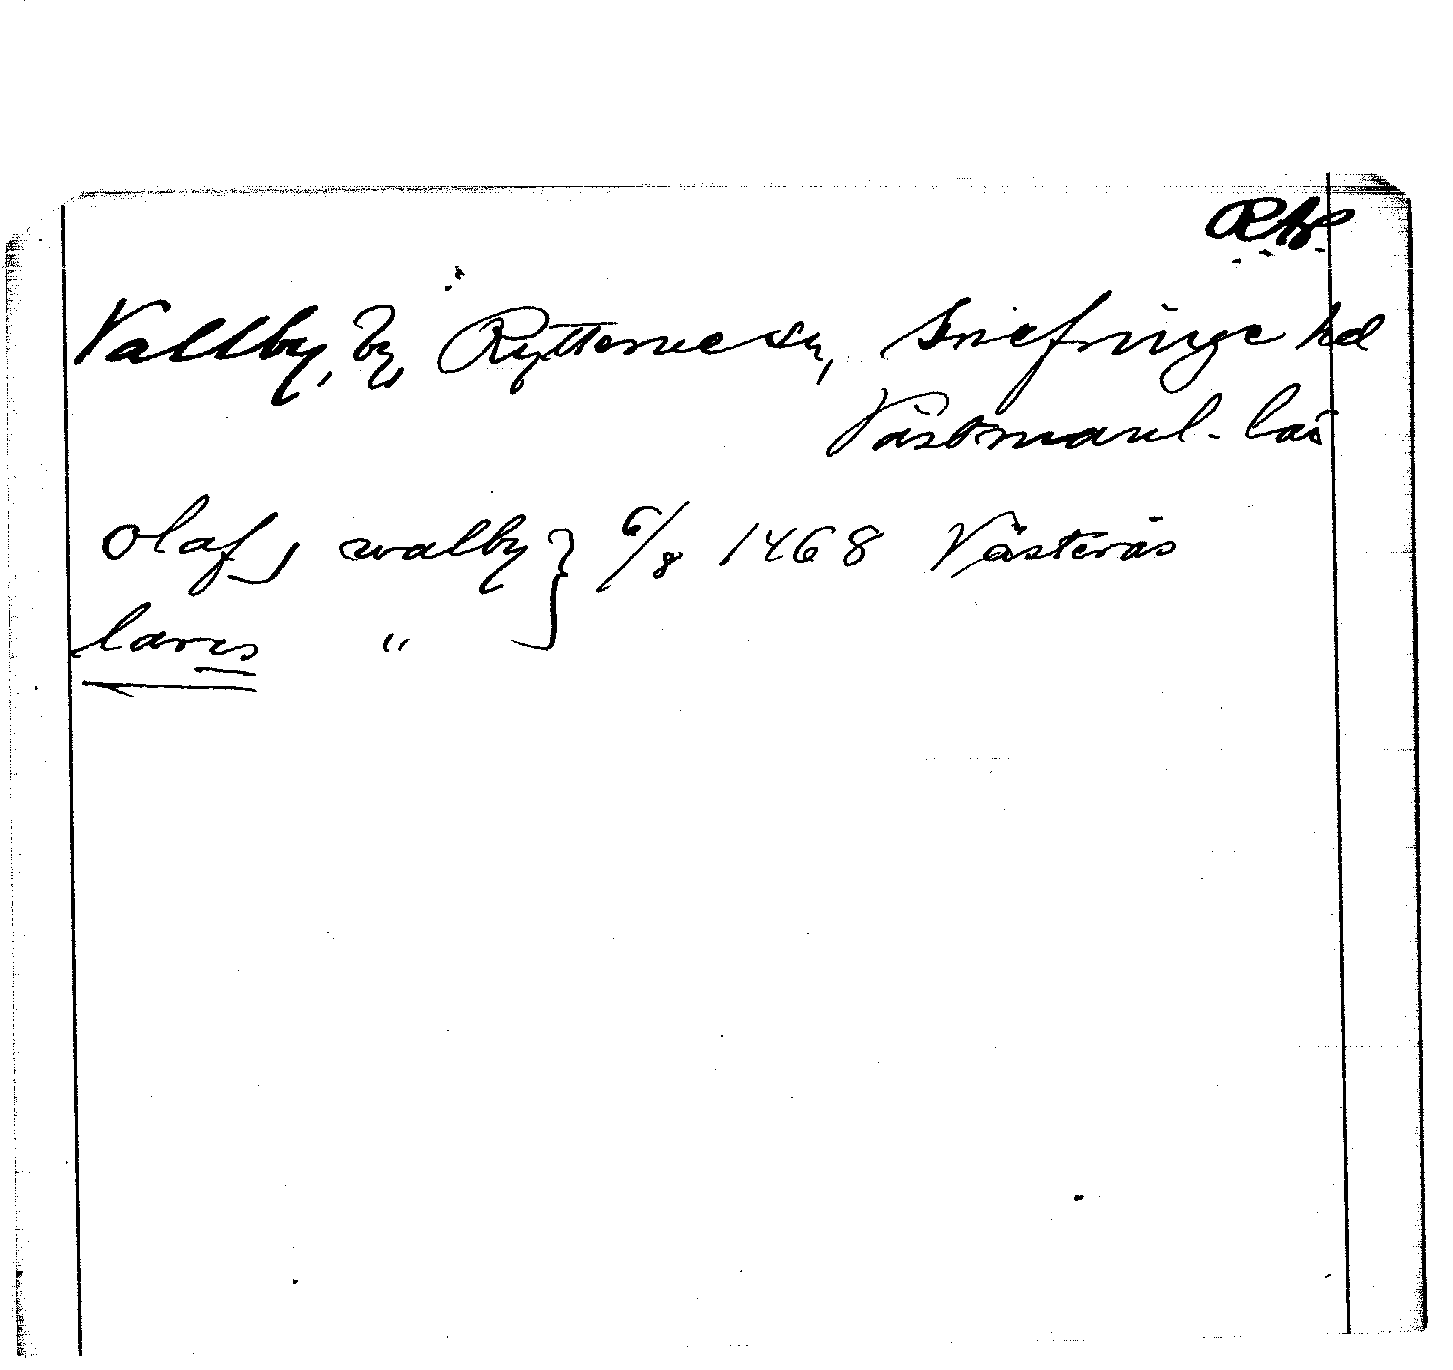 Vallby, by, Rytterne sn, Snefringe hd
Västmanl. län
Olaf j walby } 6/8 1468 Västerås
lares "